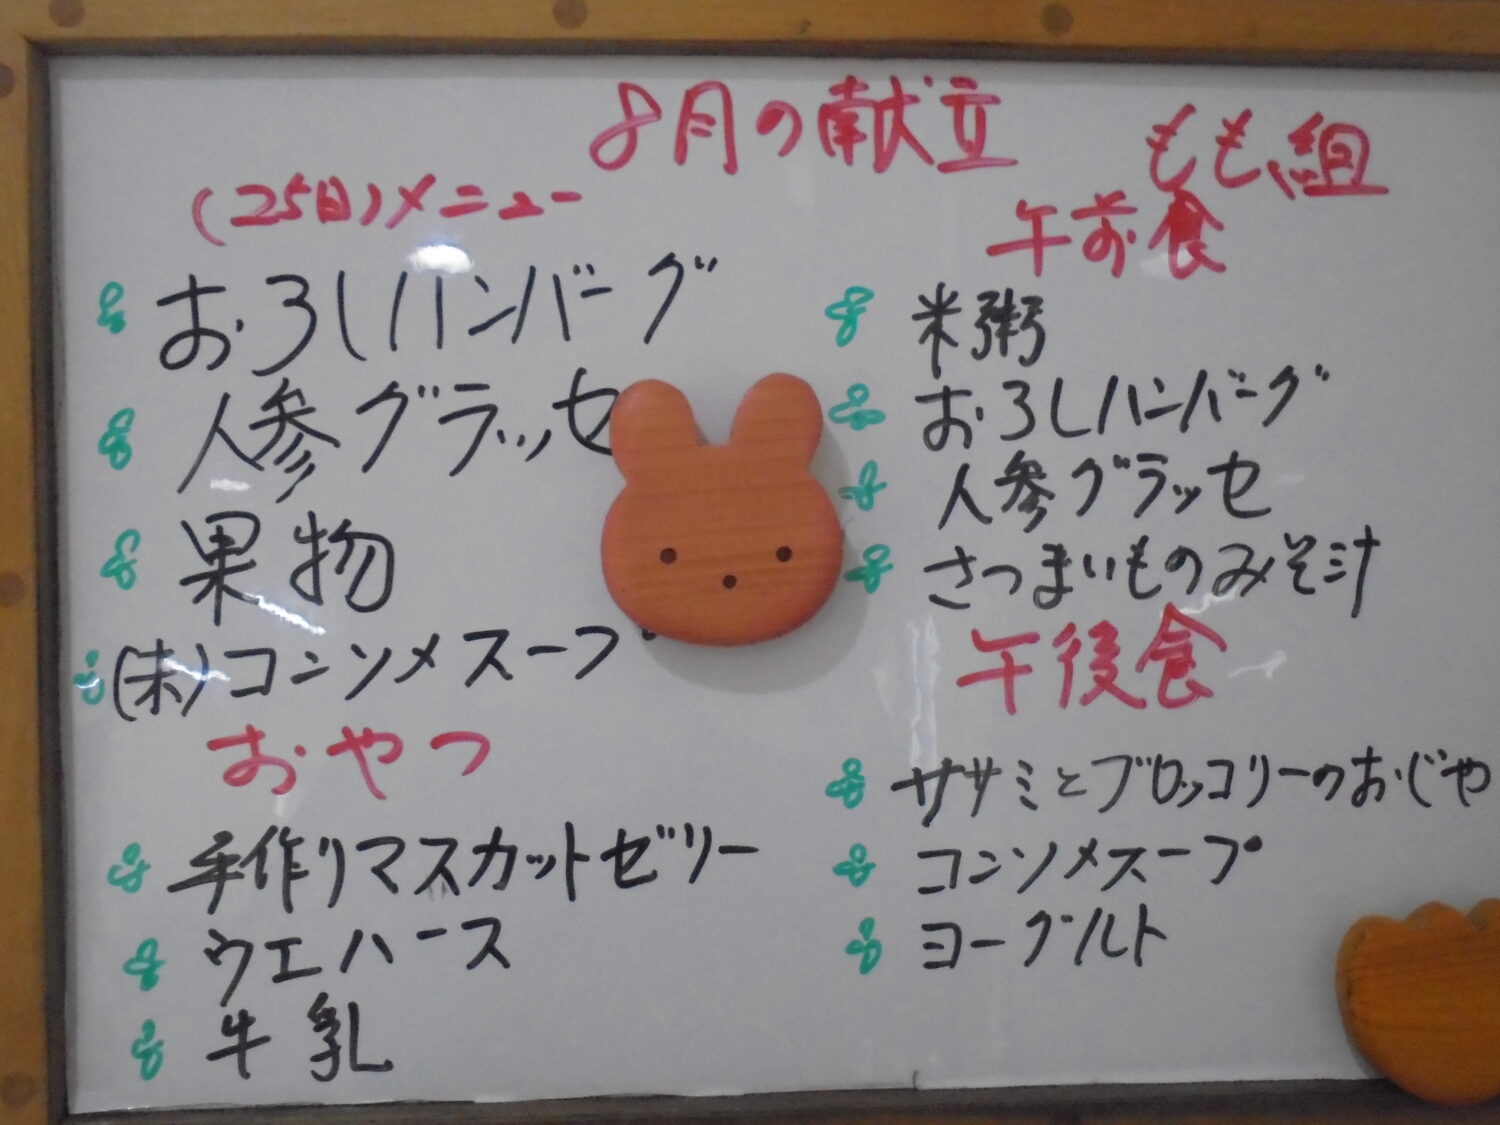 8月の献立
(25日)メニュー
おろしハンバーグ
人参グラッセ
果物
(未)コンソメスープ
おやつ
手作りマスカットゼリー
ウエハース
牛乳
もも組
午前食
米粥
おろしハンバーグ
人参グラッセ
さつまいものみそ汁
午後食
ササミとブロッコリーのおじや
コンソメスープ
ヨーグルト